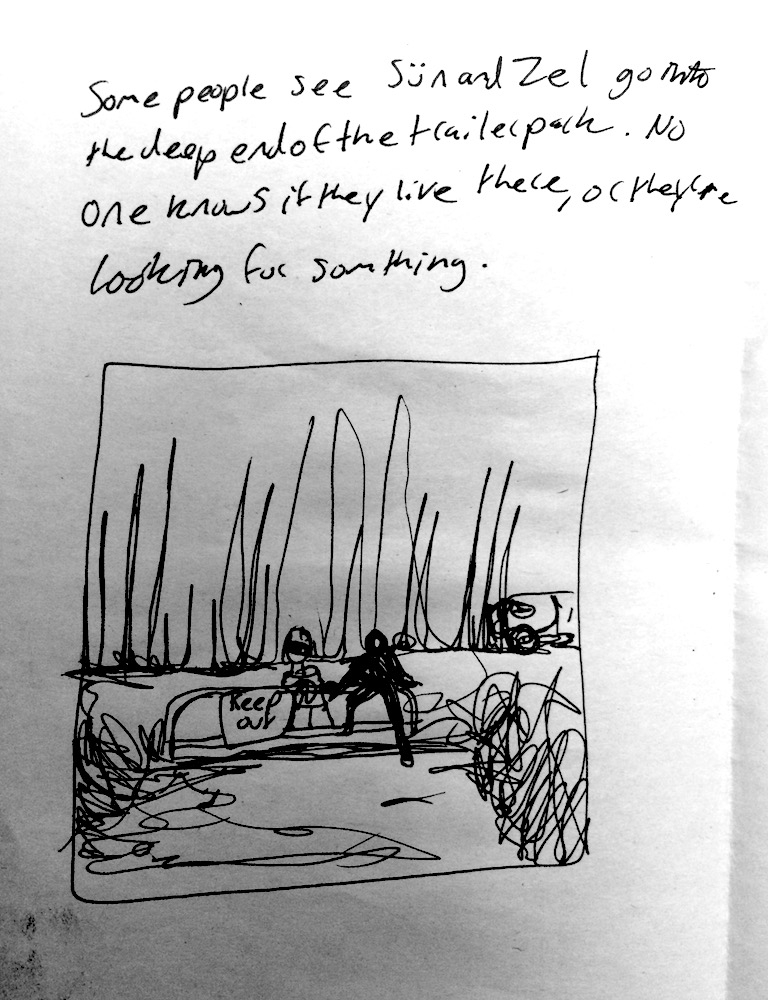 Some people see Sün and Zel go into
the deep end of the trailer park. No
one knows if they live there, or they're
looking for somthing.
Keep
out